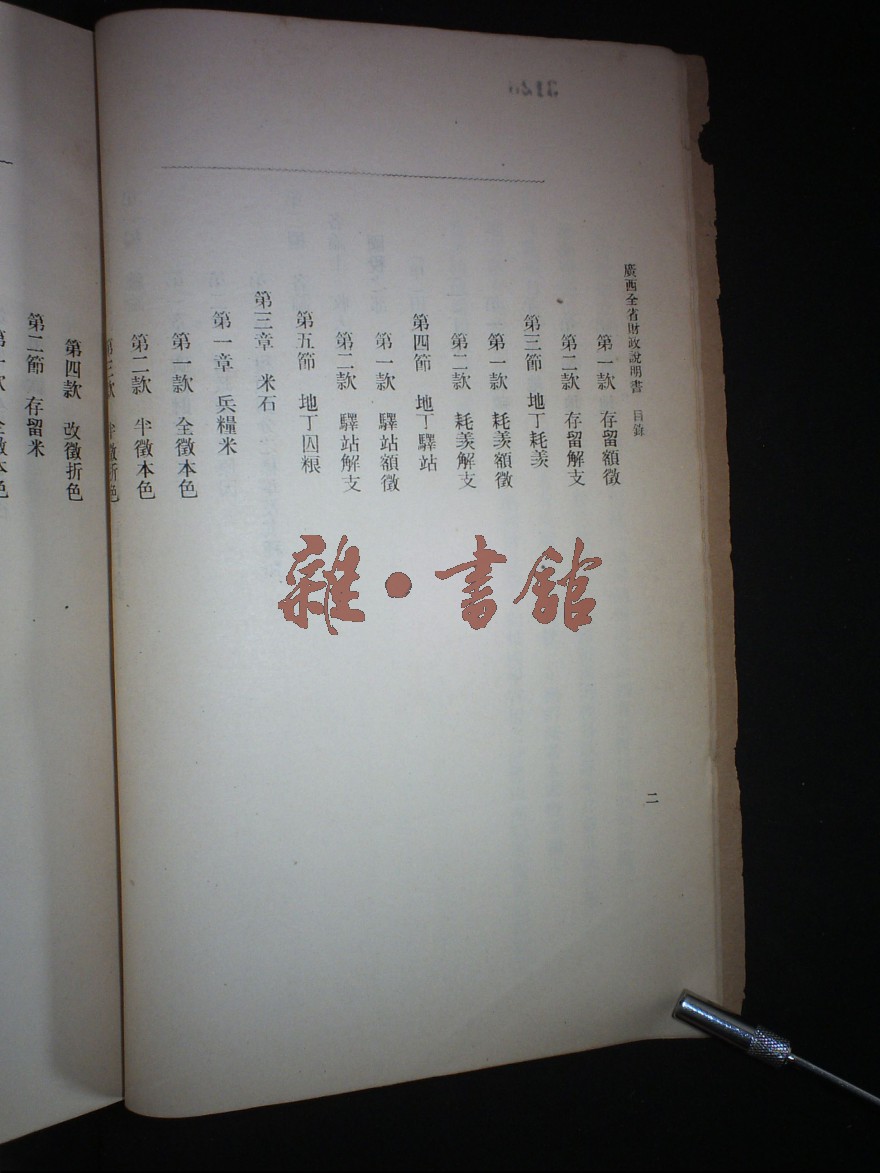 廣西全省財政說明書 目錄
二
第一款 存留額徵
第二款 存留解支
第三節 地丁耗羨
第一款 耗羨額徵
第二款 耗羨解支
第四節 地丁驛站
第一款 驛站額徵
第二款 驛站解支
第五節 地丁囚粮
第三章 米石
第一章 兵糧米
第一款 全徵本色
第二款 半徵本色
第三款 半徵折色
第四款 改徵折色
第二節 存留米
第一款 全徵本色
雜·書館